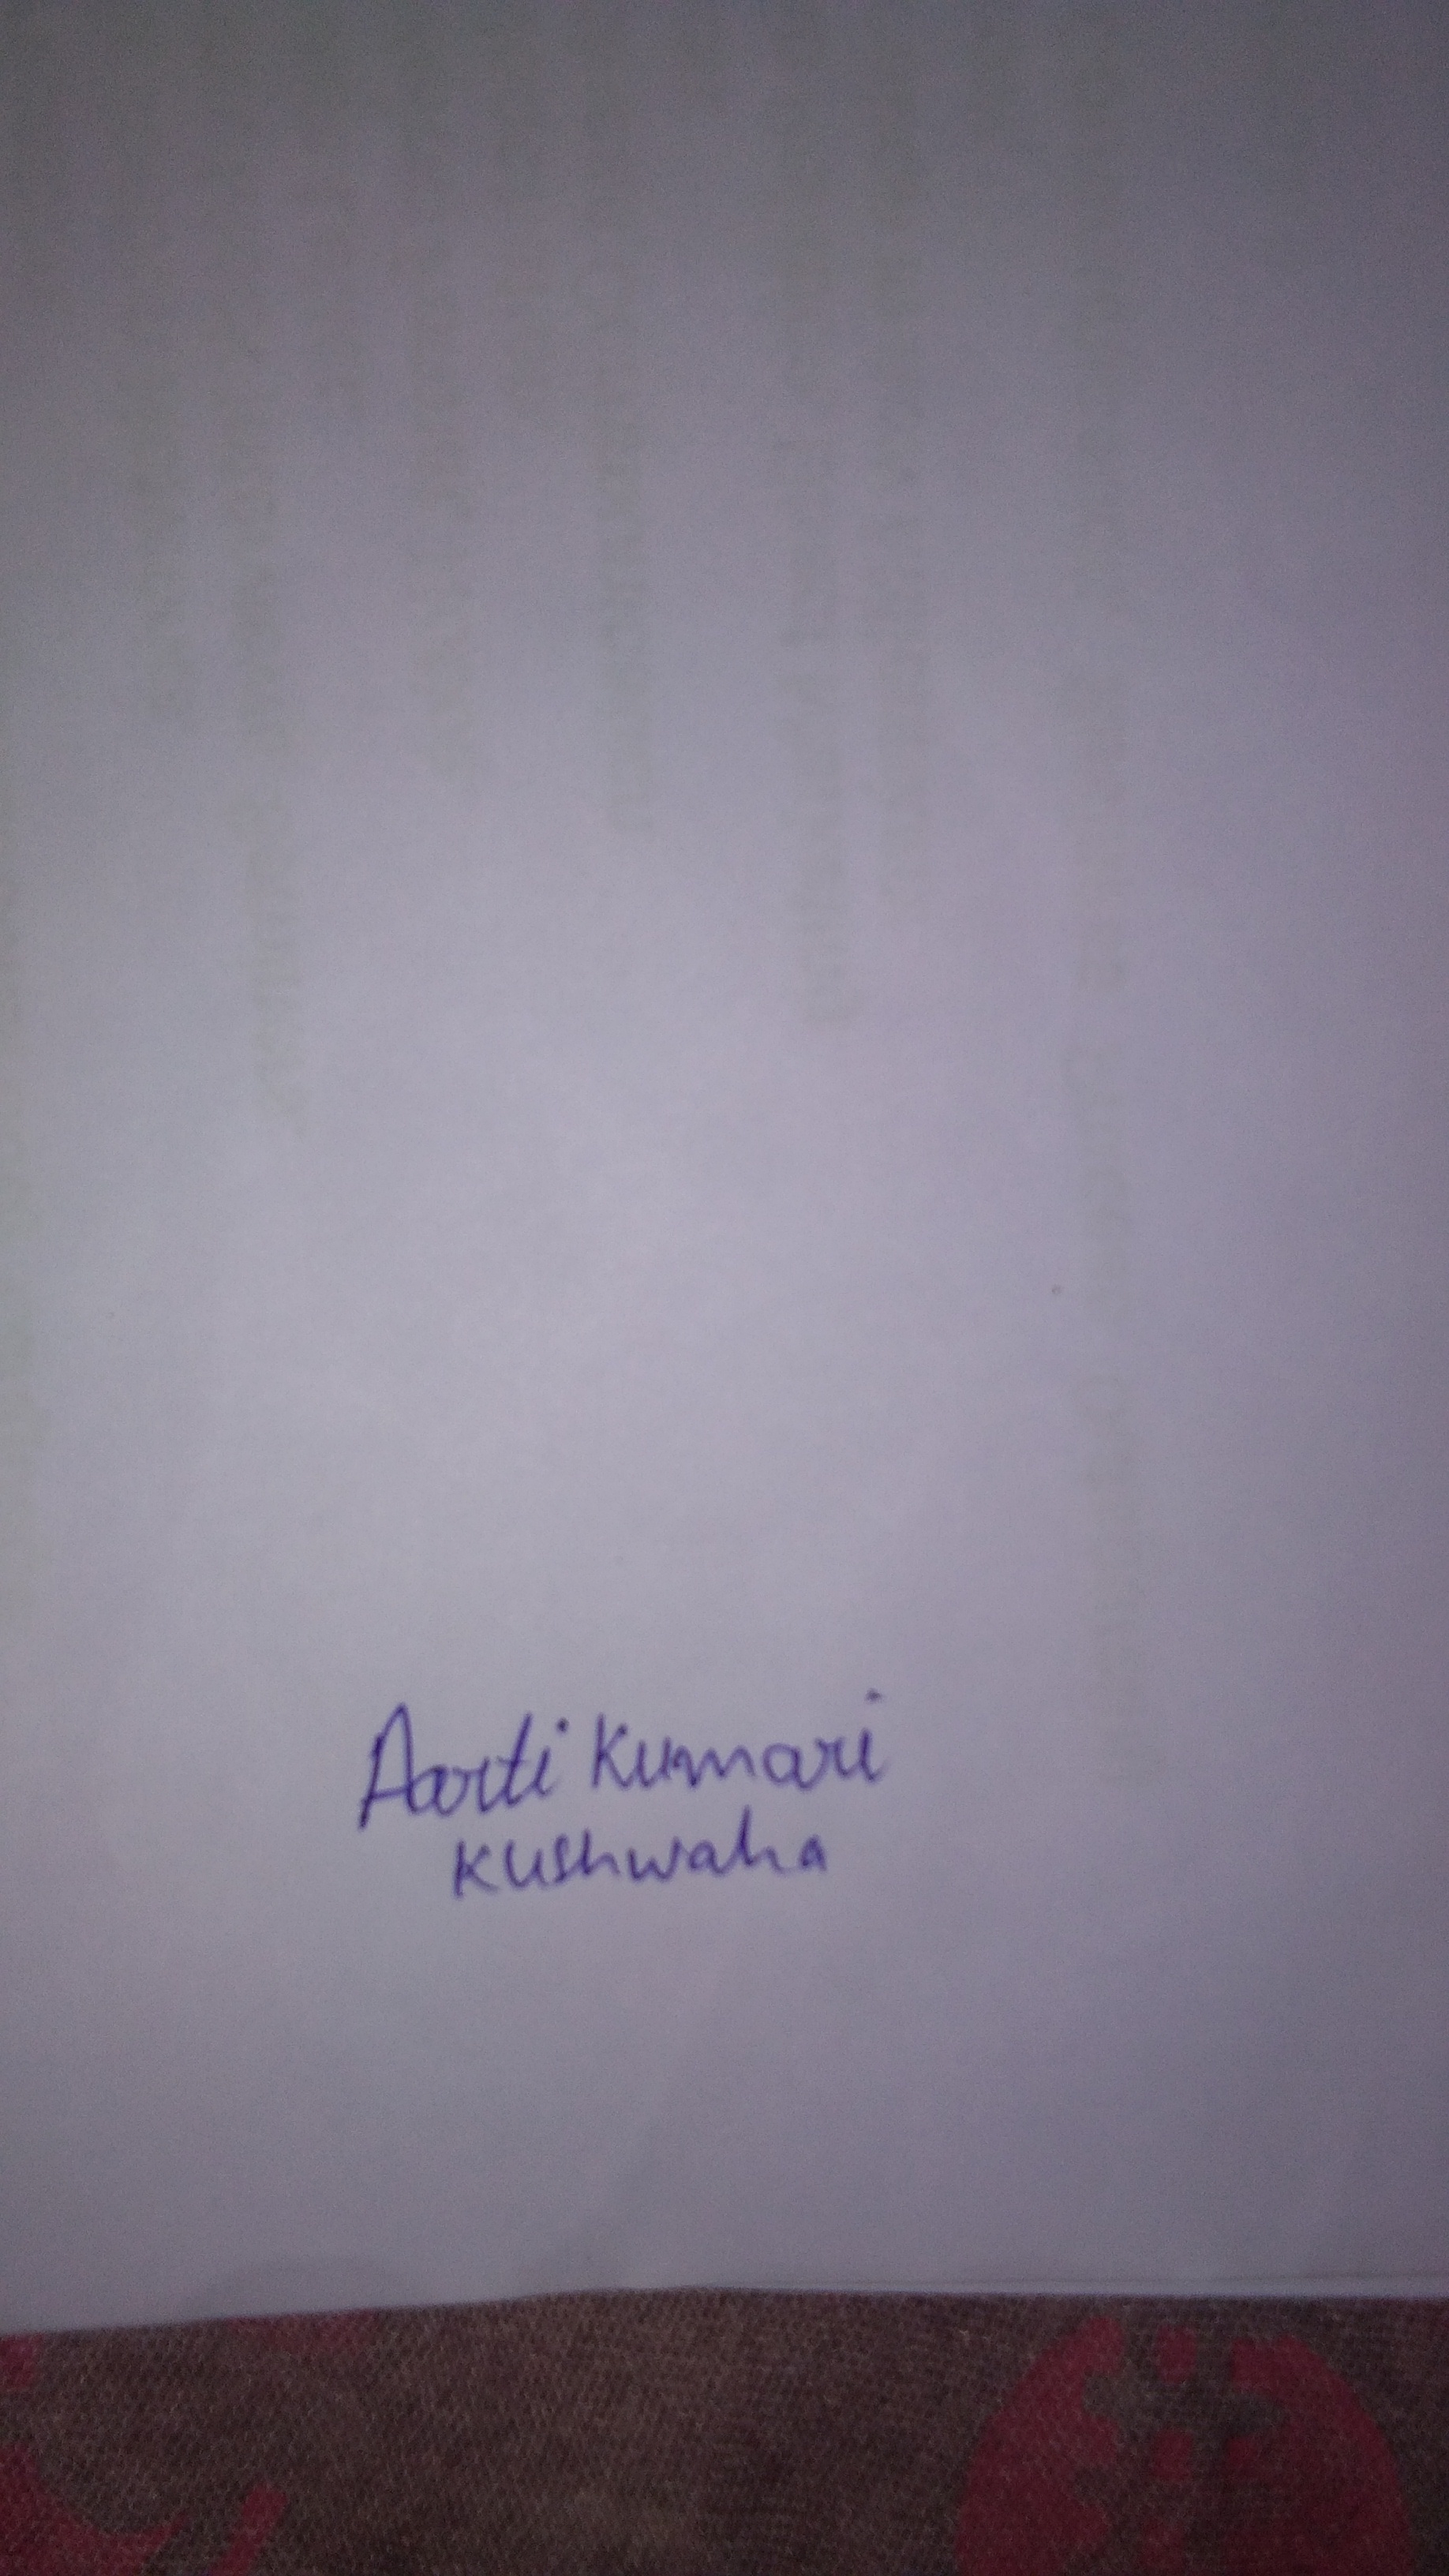 Aarti Kumari
Kushwaha